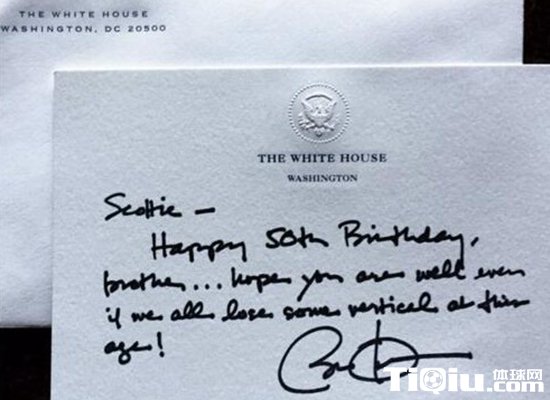 THE WHITE HOUSE
WASHINGTON, DC 20500
THE WHITE HOUSE
WASHINGTON
Scottie —
Happy 50th Birthday,
brother... hope you are well even
if we all lose some vertical at this
age!
TiQiu.com
体球网